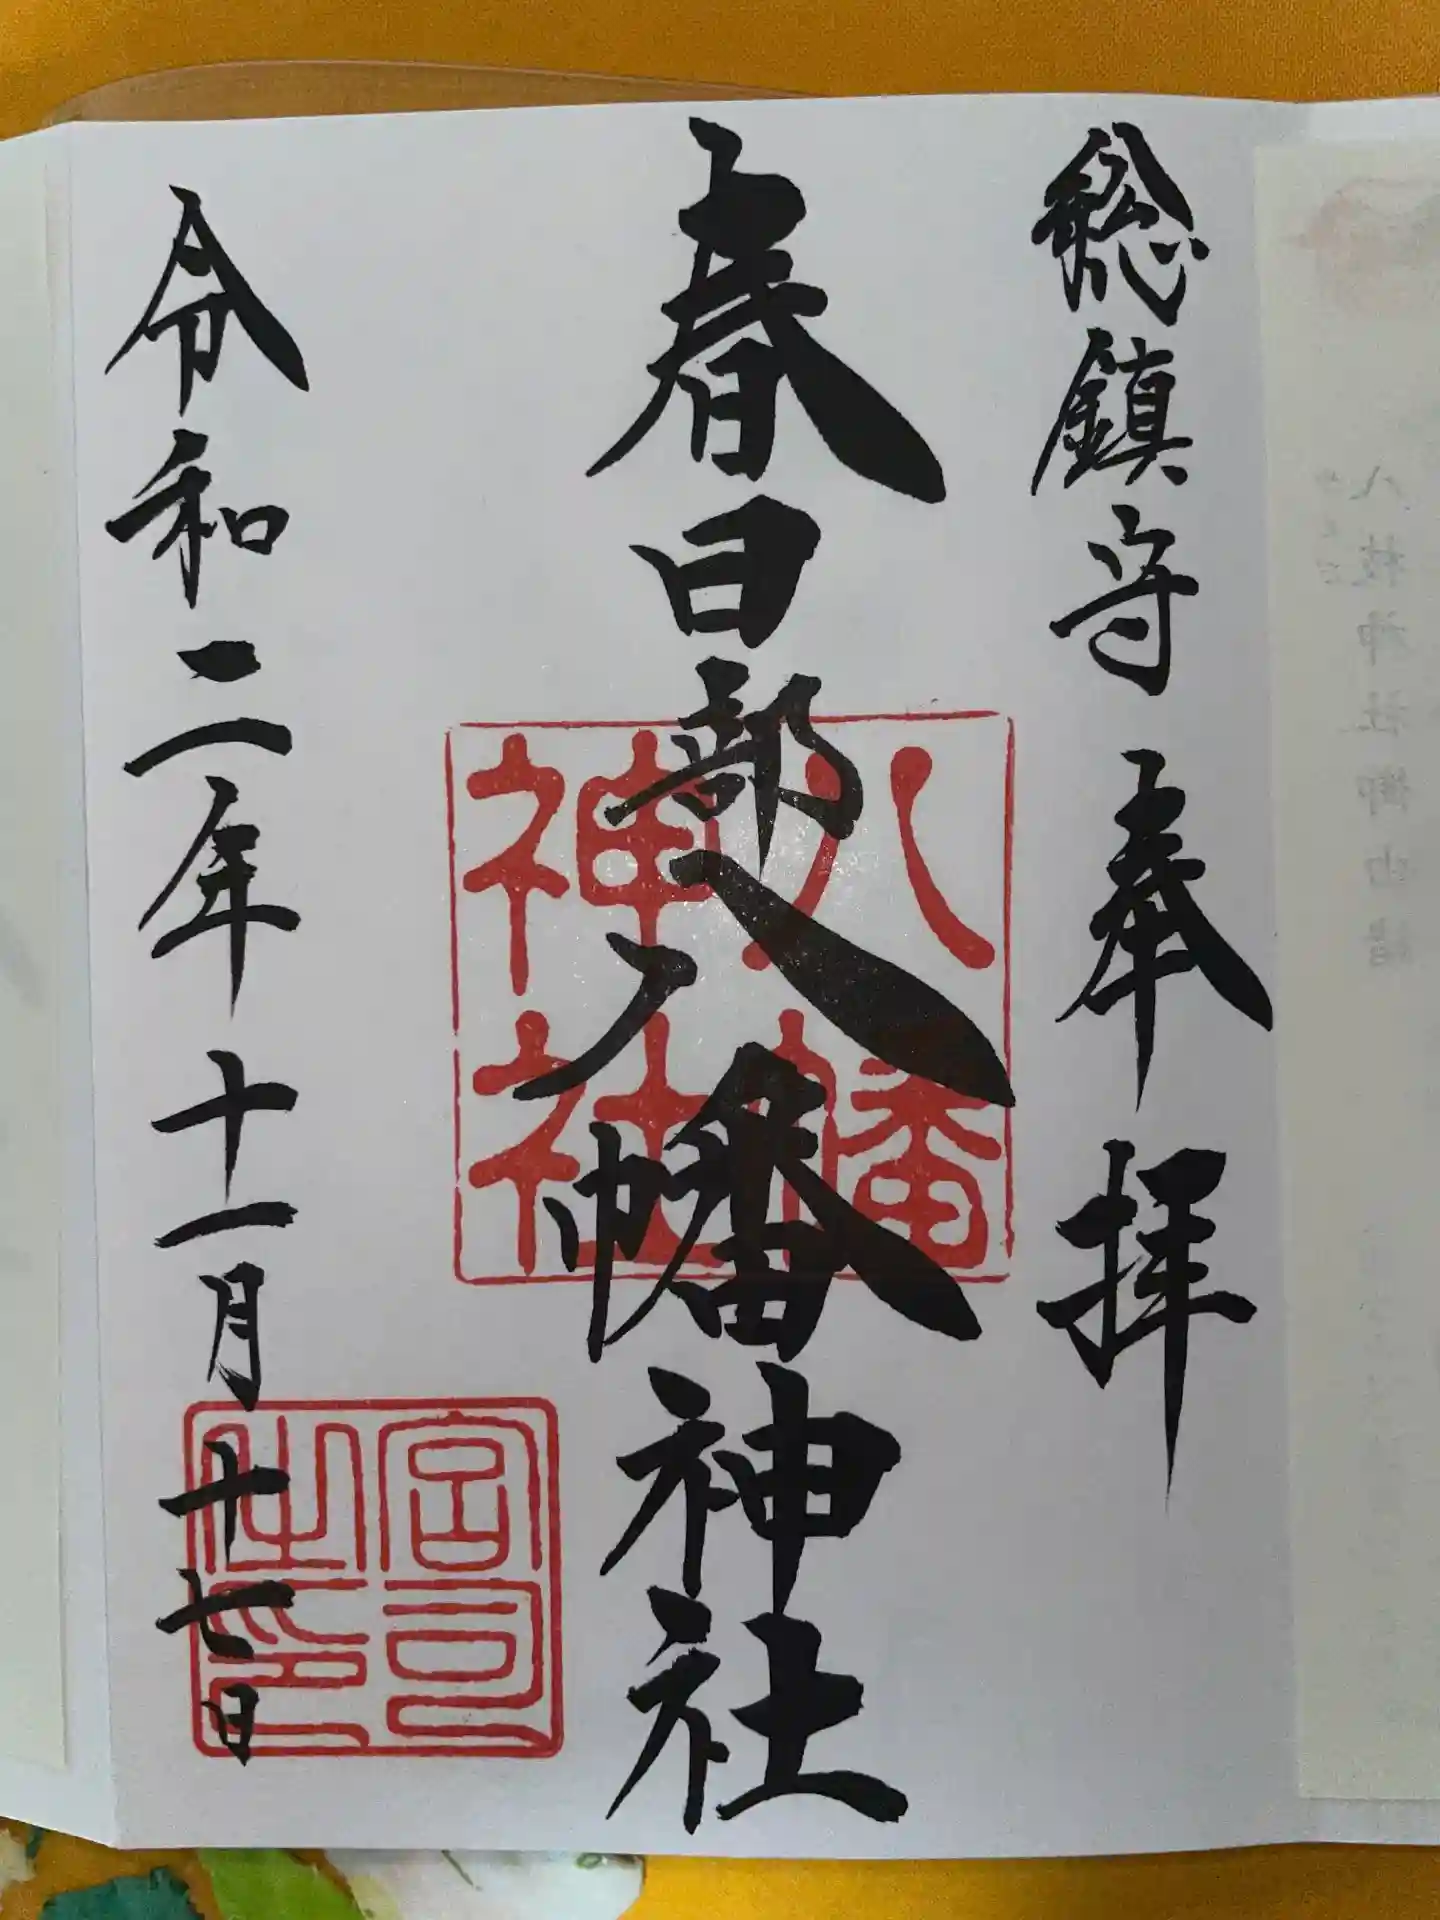 総鎮守 奉拝
春日部八幡神社
八幡
神社
令和二年十一月十七日
宮司
之印
八枝神社御由緒